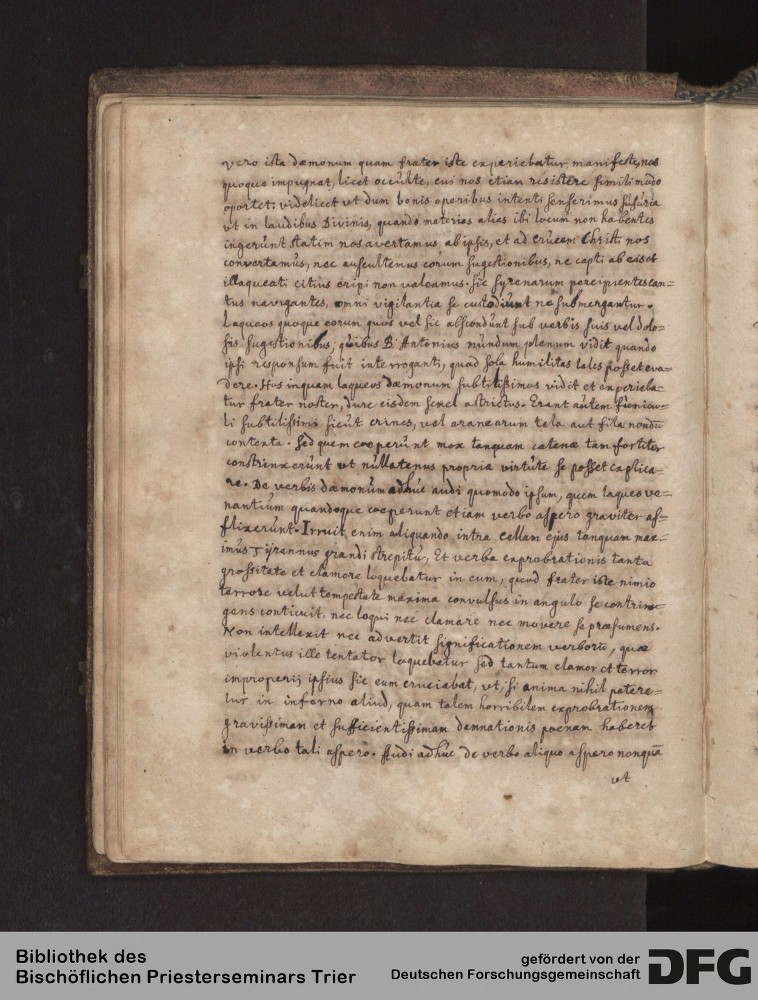 vero ista dæmonum quam frater iste experiebatur manifeste, nos
quoque impugnat, licet occulte, cui nos etiam resistere simili modo
oportet: videlicet ut dum bonis operibus intenti senserimus susuria
ut in laudibus Divinis, quando materias alias ibi locum non habentes
ingerunt statim nos avertamus ab ipsis, et ad crucem Christi nos
convertamus, nec auscultemus eorum sugestionibus, ne capti ab eis et
illaqueati citius eripi non valeamus. Sic syrenarum percipientes can=
tus navigantes, omni vigilantia se custodiunt ne submergantur.
Laqueos quoque eorum quos vel sic abscondunt sub verbis suis vel dolo=
sis sugestionibus, quibus B. Antonius mundum plenum vidit quando
ipsi responsum fuit interroganti, quod sola humilitas tales posset eva=
dere. Hos inquam laqueos dæmonum subtilissimos vidit et experieba=
tur frater noster, dure eisdem semel astrictus. Erant autem funicu=
li subtilissimi sicut crines, vel aranearum tela aut fila nondu
contenta. Sed quem coeperunt mox tanquam catenæ tam fortiter
constrinxerunt ut nullatenus propria virtute se posset explica=
re. De verbis dæmonum adhuc audi quomodo ipsum, quem laqueo ve=
nantium quandoque coeperunt etiam verbo aspero graviter af=
flixerunt. Irruit enim aliquando intra cellam ejus tanquam max=
imus Tyrannus grandi strepitu, Et verba exprobrationis tanta
grossitate et clamore loquebatur in eum, quod frater iste nimio
terrore velut tempestate maxima convulsus in angulo se contrin=
gens conticuit, nec loqui nec clamare nec movere se præsumens.
Non intellexit nec advertit significationem verborū, quæ
violentus ille tentator loquebatur sed tantum clamor et terror
improperij ipsius sic eum cruciabat, ut, si anima nihil patere=
tur in inferno aliud, quam talem horribilem exprobrationem
gravissimam et sufficientissimam damnationis poenam haberet
in verbo tali aspero. Audi adhuc de verbo aliquo aspero nonquā
ut
Bibliothek des
Bischöflichen Priesterseminars Trier
gefördert von der
Deutschen Forschungsgemeinschaft
DFG